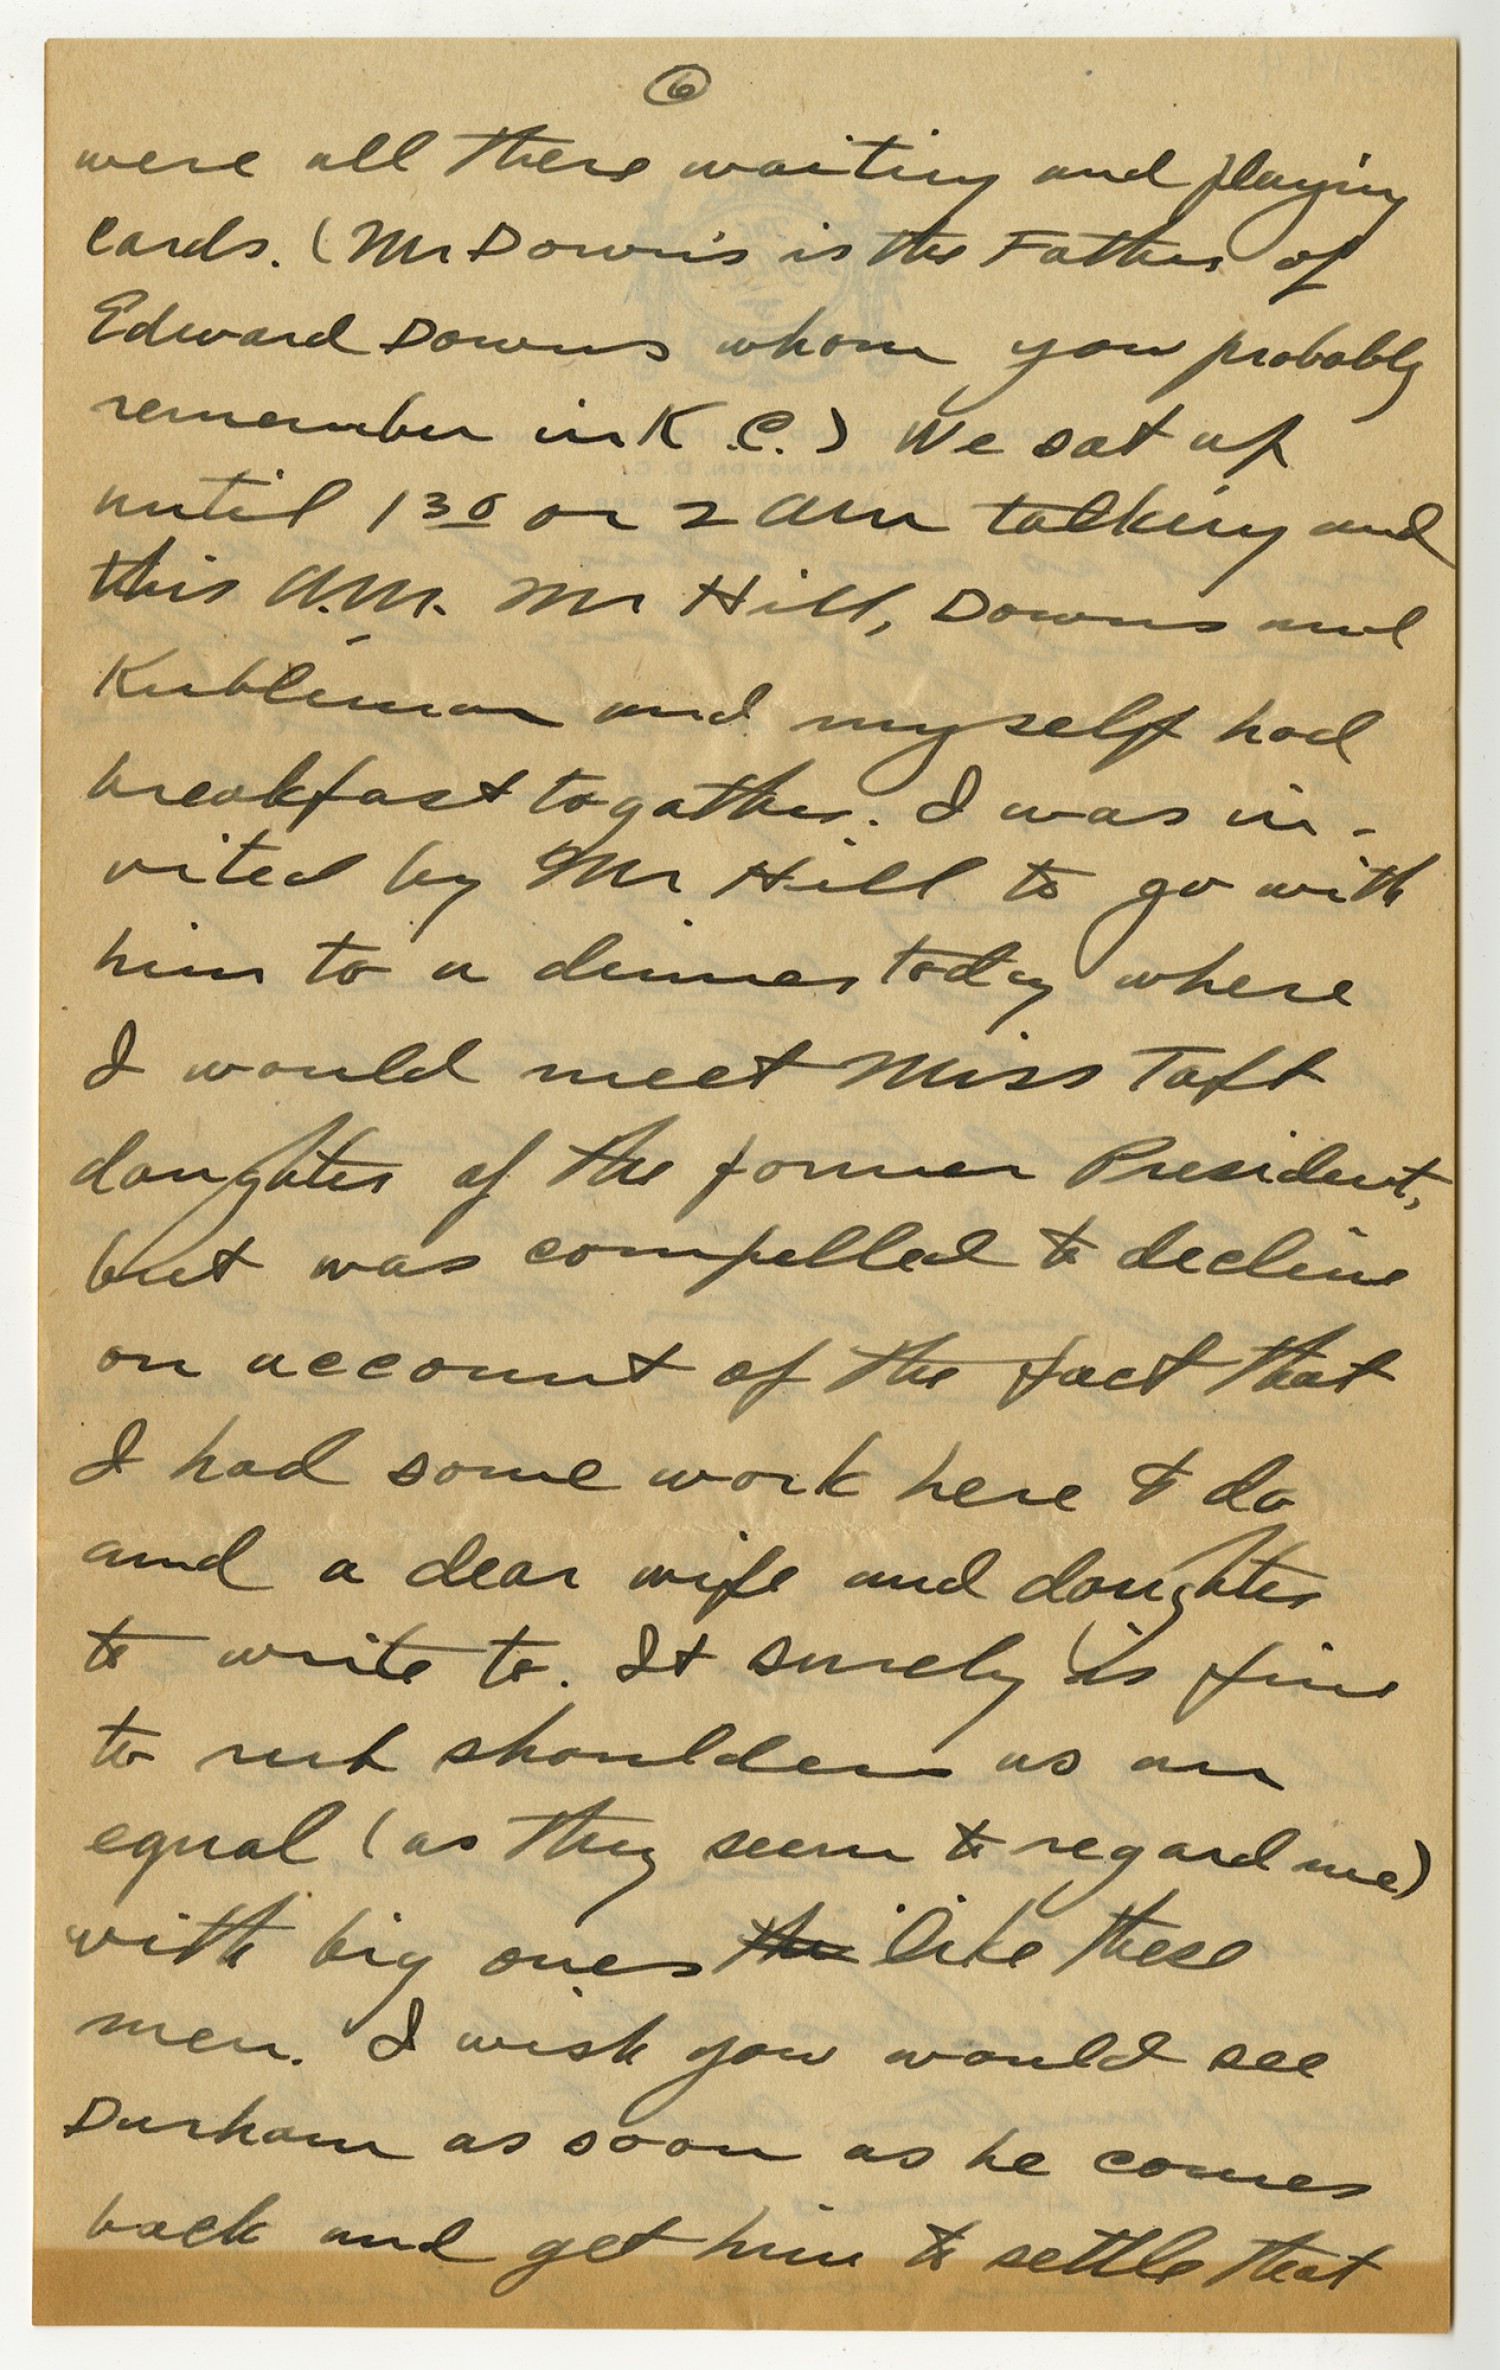 6
were all there waiting and playing
cards. (Mr Downs is the Father of
Edward Downs whom you probably
remember in K.C.) We sat up
until 1 30 or 2 AM talking and
this A.M. Mr Hill, Downs and
and myself had
breakfast togather. I was in-
vited by Mr Hill to go with
him to a dinner today where
I would meet Miss Taft
daughter of the former President,
but was compelled to decline
on account of the fact that
I had some work here to do
and a dear wife and daughter
to write to. It surely is fine
to rub shoulders as an
equal (as they seem to regard me)
with big ones the like these
men. I wish you would see
Durham as soon as he comes
back and get him to settle that